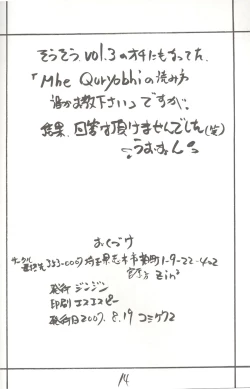 そうそう、vol.3のオチにもなってた、
「Mhe Quryobhiの読み方
誰かお教え下さい」ですが、
結果、回答は頂けませんでした(笑)
うむむん
おくづけ
サークル
連絡先 353-0007 埼玉県志木市 1-9-22-402
Zin²
発行 ジンジン
印刷 エスエスピー
発行日 2007.8.19 コミケ72
14